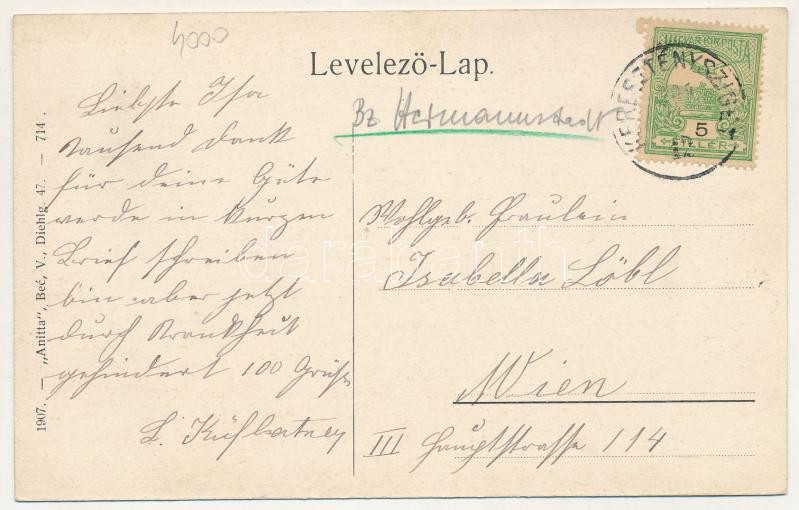 4000
Levelezö-Lap.
Bz Hermannstadt
MAGYAR KIR. POSTA
KERESZTÉNYSZIGET
5
FILLÉR
Liebste Isa
tausend Dank
für deine Güte
werde in kurzen
Brief schreiben
bin aber jetzt
durch Krankheit
gehindert 100 Grüße
L.
Wohlgeb. Fräulein
Isabella Löbl
Wien
III Hauptstrasse 114
1907. — „Anitta", Beč, V., Diehlg. 47. — 714.
darabanth